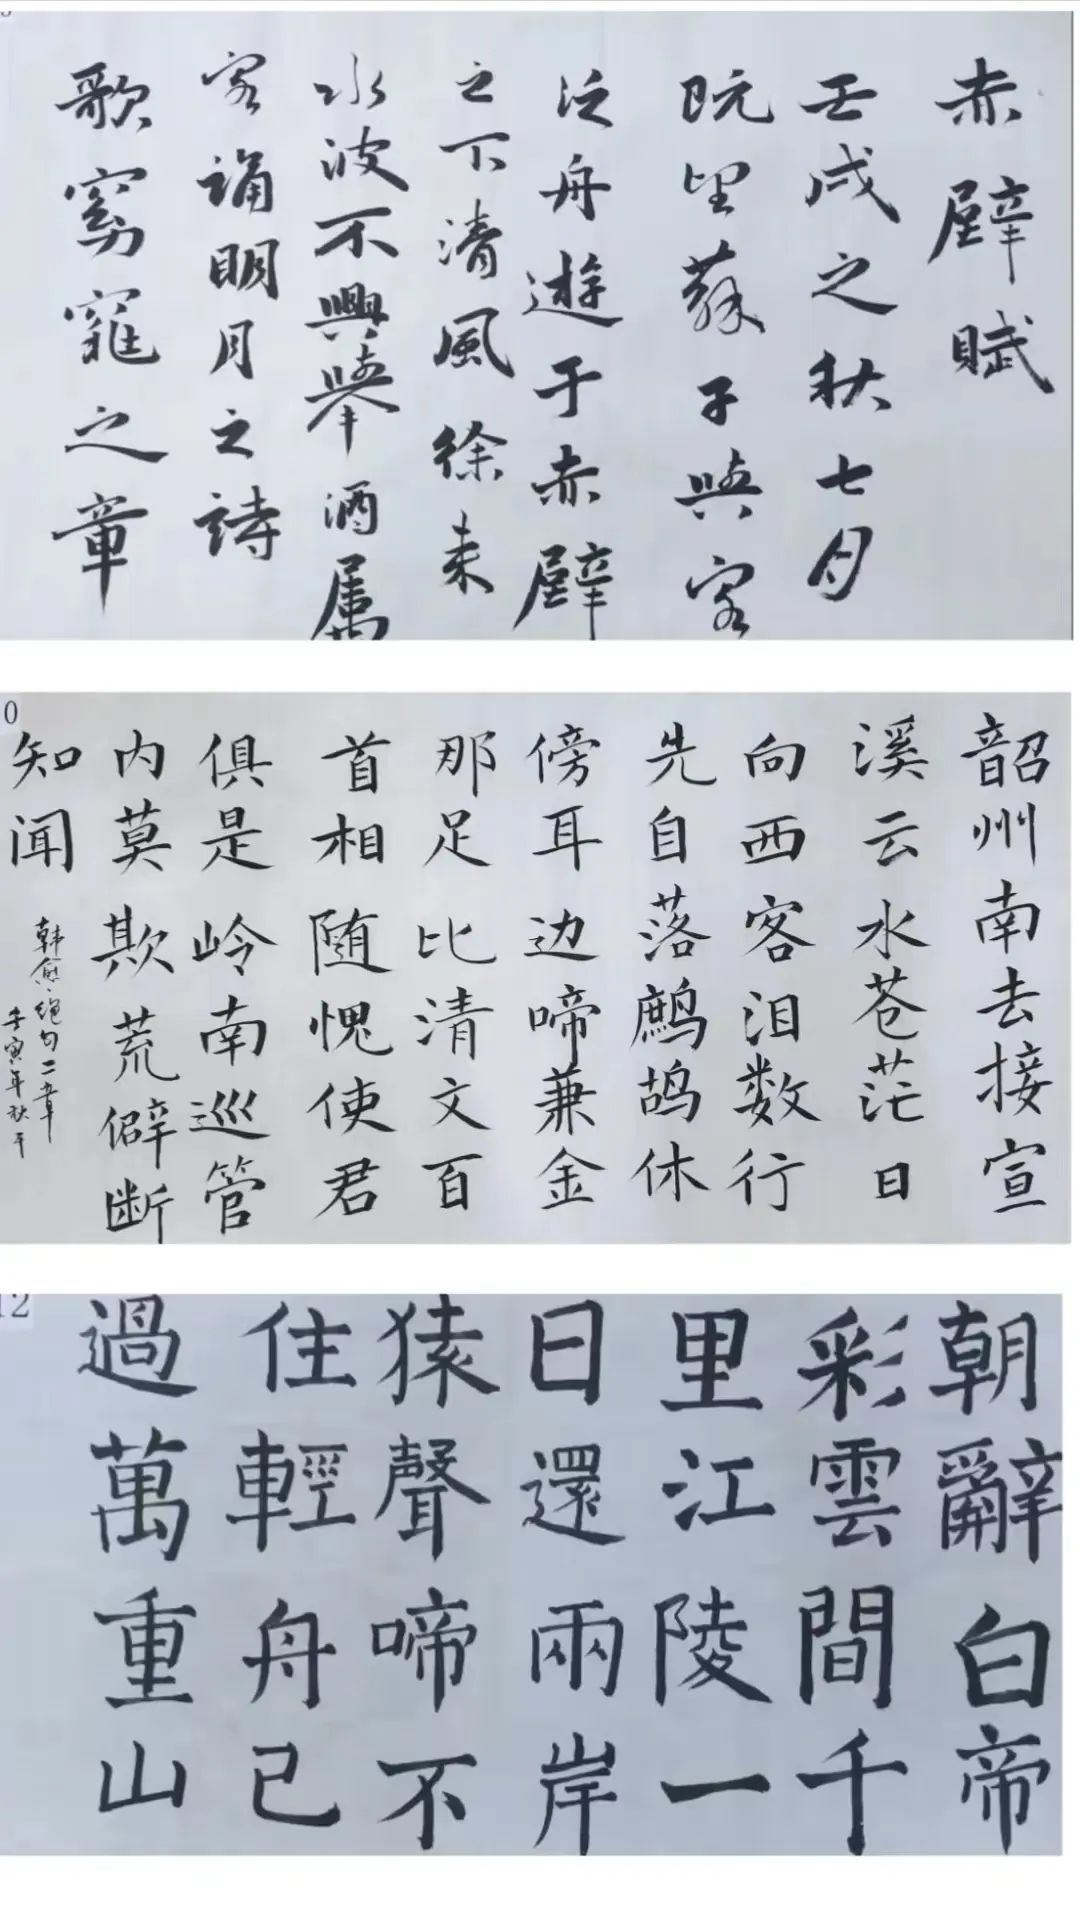 赤壁賦
壬戌之秋七月
既望蘇子與客
泛舟遊于赤壁
之下清風徐来
水波不興舉酒属
客誦明月之詩
歌窈窕之章
0
韶州南去接宣
溪云水苍茫日
向西客泪数行
先自落鹧鸪休
傍耳边啼兼金
那足比清文百
首相随愧使君
俱是岭南巡管
内莫欺荒僻断
知闻
韩愈绝句二章
壬寅年秋于
12
朝辭白帝
彩雲間千
里江陵一
日還兩岸
猿聲啼不
住輕舟已
過萬重山